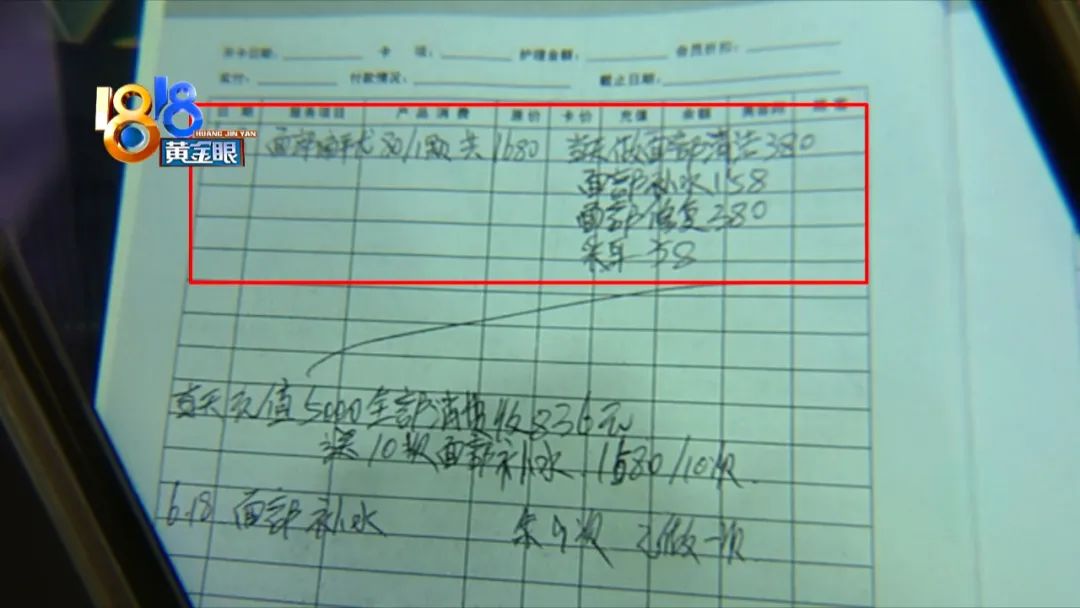 开卡日期： 卡 项： 护理金额： 会员折扣：
实付： 付款情况： 截止日期：
日期 服务项目 产品消费 原价 卡价 充值 余额 美容师 签字
1818
HUANG JIN YAN
黄金眼
面部 30/1颗 共1680 当天做面部清洁380
面部补水158
面部修复380
采耳
当天充值5000全部消费收836元
送10次面部补水 1580/10次
6.18 面部补水 余9次 已做一次